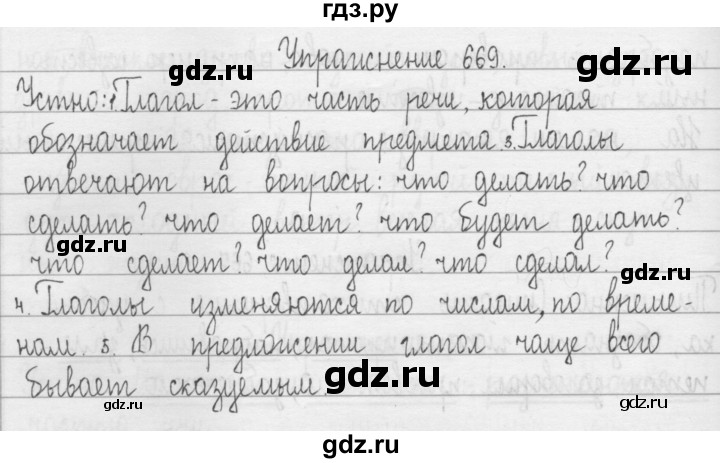 гдз.ру
Упражнение 669.
Устно: 1 Глагол - это часть речи, которая
обозначает действие предмета. 3. Глаголы
отвечают на вопросы: что делать? что
сделать? что делает? что будет делать?
что сделает? что делал? что сделал?
4. Глаголы изменяются по числам, по време-
нам. 5. В предложении глагол чаще всего
бывает сказуемым.
gdz.ru
gdz.ru
gdz.ru
gdz.ru
gdz.ru
gdz.ru
gdz.ru
gdz.ru
gdz.ru
gdz.ru